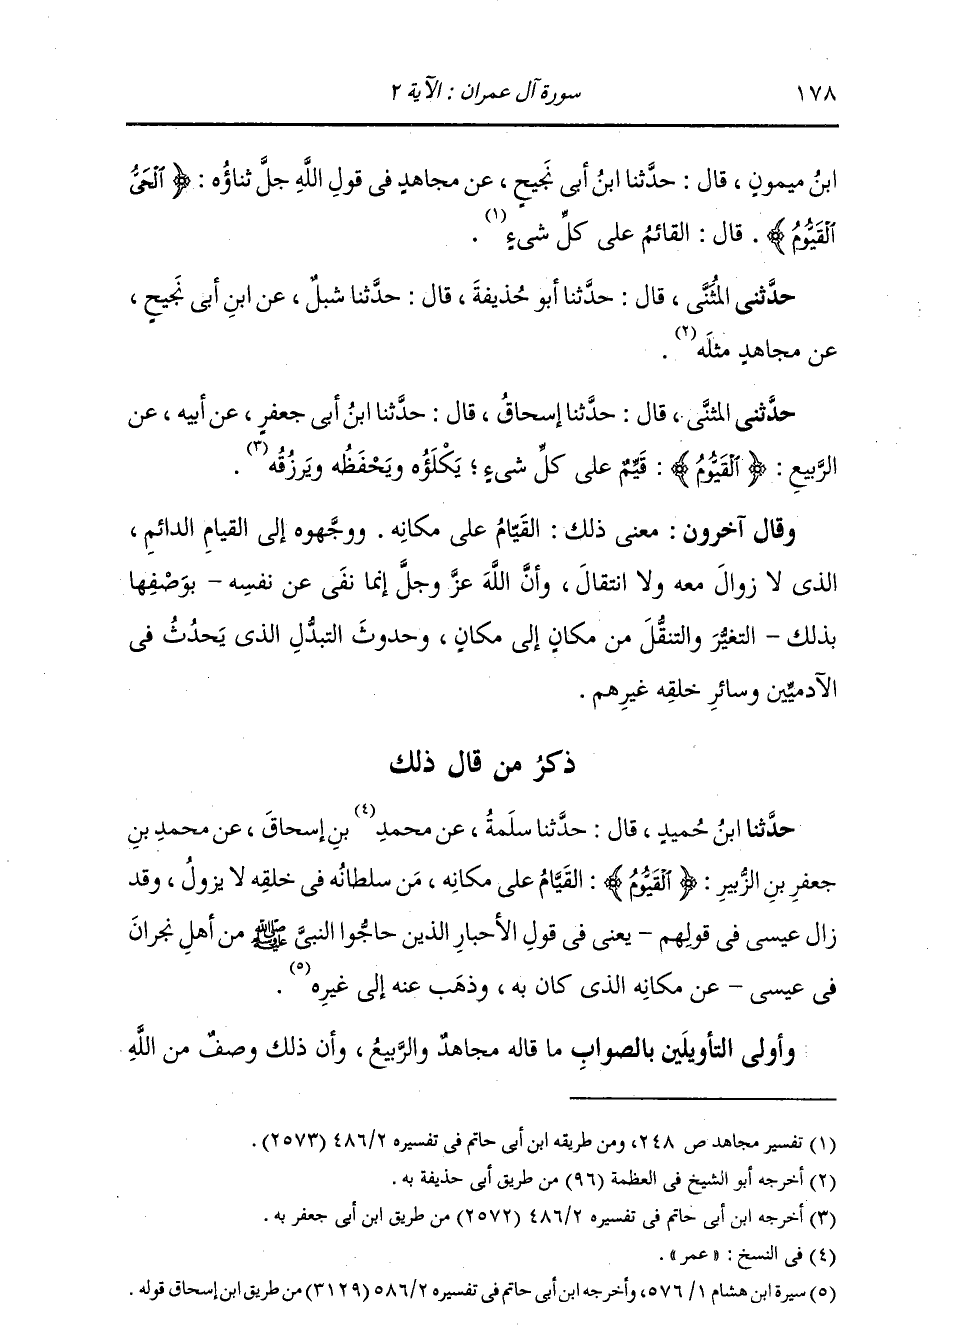 ١٧٨ سورة آل عمران : الآية ٢
ابنُ ميمونٍ ، قال : حدَّثنا ابنُ أبى نَجيحٍ ، عن مجاهدٍ فى قولِ اللَّهِ جلَّ ثناؤُه : ﴿ ٱلْحَىُّ
ٱلْقَيُّومُ ﴾ . قال : القائمُ على كلِّ شىءٍ(١) .
حدَّثنى المُثَنَّى ، قال : حدَّثنا أبو حُذيفةَ ، قال : حدَّثنا شبلٌ ، عن ابنِ أبى نَجيحٍ ،
عن مجاهدٍ مثلَه(٢) .
حدَّثنى المثنَّى ، قال : حدَّثنا إسحاقُ ، قال : حدَّثنا ابنُ أبى جعفرٍ ، عن أبيه ، عن
الرَّبيعِ : ﴿ ٱلْقَيُّومُ ﴾ : قَيِّمٌ على كلِّ شىءٍ ؛ يَكْلَؤُه ويَحْفَظُه ويَرزُقُه(٣) .
وقال آخرون : معنى ذلك : القَيّامُ على مكانِه . ووجَّهوه إلى القيامِ الدائمِ ،
الذى لا زوالَ معه ولا انتقالَ ، وأنَّ اللَّهَ عزَّ وجلَّ إنما نفَى عن نفسِه – بوَصْفِها
بذلك – التغيُّرَ والتنقُّلَ من مكانٍ إلى مكانٍ ، وحدوثَ التبدُّلِ الذى يَحدُثُ فى
الآدميِّين وسائرِ خلقِه غيرِهم .
ذكرُ من قال ذلك
حدَّثنا ابنُ حُميدٍ ، قال : حدَّثنا سلَمةُ ، عن محمدِ(٤) بنِ إسحاقَ ، عن محمدِ بنِ
جعفرِ بنِ الزُّبيرِ : ﴿ ٱلْقَيُّومُ ﴾ : القَيَّامُ على مكانِه ، مَن سلطانُه فى خلقِه لا يزولُ ، وقد
زال عيسى فى قولِهم – يعنى فى قولِ الأحبارِ الذين حاجُّوا النبىَّ ﷺ من أهلِ نجرانَ
فى عيسى – عن مكانِه الذى كان به ، وذهَب عنه إلى غيرِه(٥) .
وأولى التأويلَين بالصوابِ ما قاله مجاهدٌ والرَّبيعُ ، وأن ذلك وصفٌ من اللَّهِ
(١) تفسير مجاهد ص ٢٤٨، ومن طريقه ابن أبى حاتم فى تفسيره ٤٨٦/٢ (٢٥٧٣) .
(٢) أخرجه أبو الشيخ فى العظمة (٩٦) من طريق أبى حذيفة به .
(٣) أخرجه ابن أبى حاتم فى تفسيره ٤٨٦/٢ (٢٥٧٢) من طريق ابن أبى جعفر به .
(٤) فى النسخ : « عمر » .
(٥) سيرة ابن هشام ١/ ٥٧٦، وأخرجه ابن أبى حاتم فى تفسيره ٥٨٦/٢ (٣١٢٩) من طريق ابن إسحاق قوله .